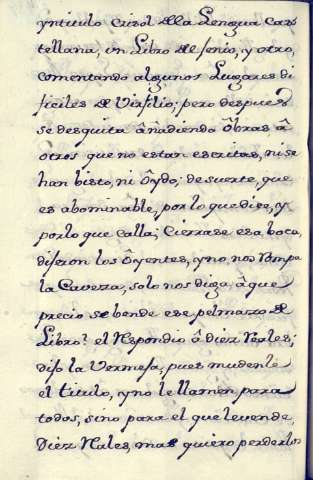 yntitulo Crisol de la Lengua Cas
tellana, un Libro de fenio, y otro,
comentando algunos Lugares di
ficiles de Virfilio; pero despues
se desquita âñadiendo Ôbras, â
otros que no estan escritas, ni se
han bisto, ni Ôydo; de suerte, que
es abominable, por lo que dize, y
por lo que calla; Cierrase esa boca,
dijeron los Ôyentes, y no nos Rompa
la Caveza, solo nos diga, â que
precio se bende ese pelmazo de
Libro? el Respondio â diez Reales;
dijo la Vermeja, pues mudenle
el titulo, y no le llamen para
todos, sino para el que le vende,
Diez Rales, mas quiero perderlos